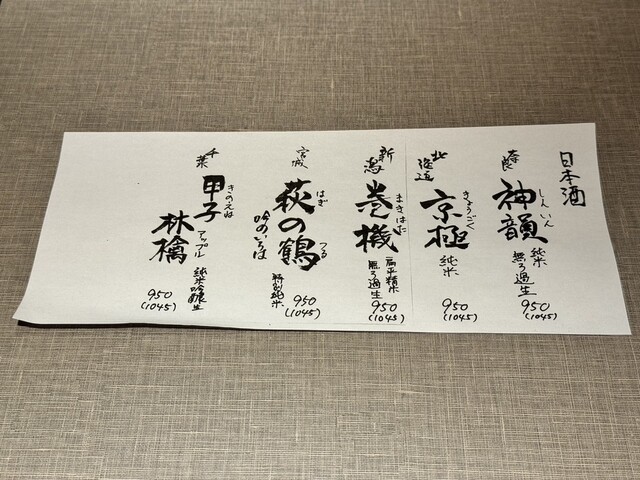 日本酒
奈良
しんいん
神韻
純米
無ろ過生
950
(1045)
北海道
きょうごく
京極
純米
950
(1045)
新潟
まきはた
巻機
扁平精米
無ろ過生
950
(1045)
宮城
はぎ
つる
萩の鶴
吟のいろは
特別純米
950
(1045)
千葉
きのえね
甲子
アップル
林檎
純米吟醸生
950
(1045)